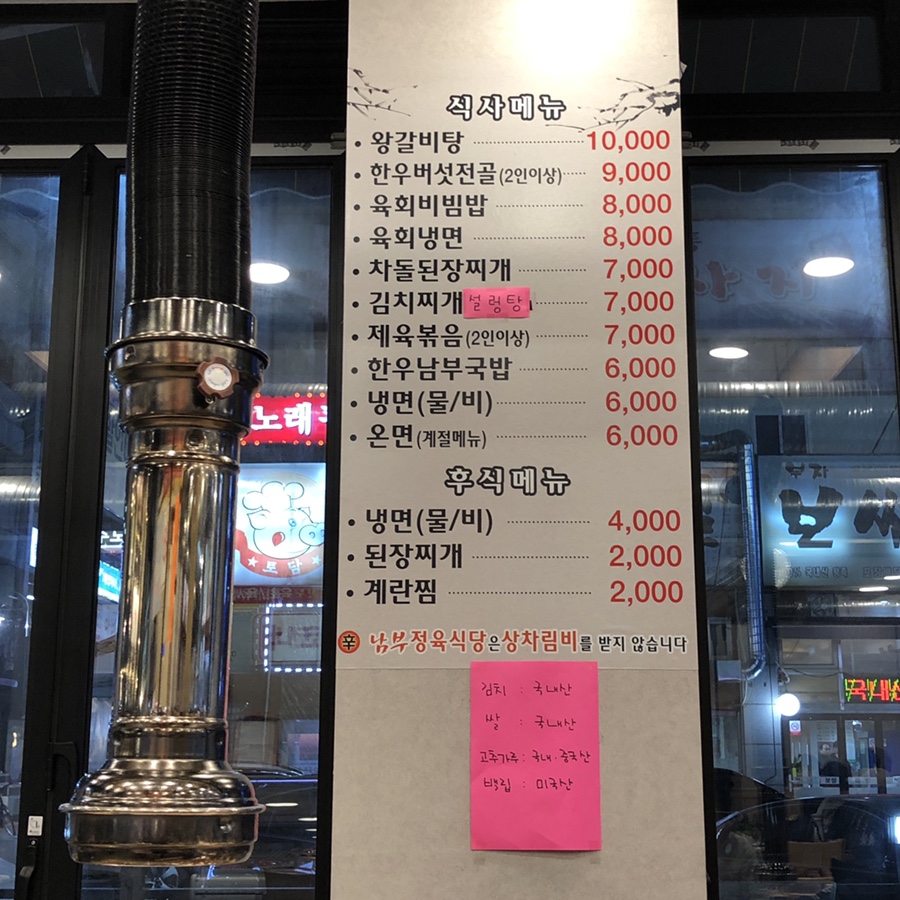 식사메뉴
• 왕갈비탕 10,000
• 한우버섯전골(2인이상) 9,000
• 육회비빔밥 8,000
• 육회냉면 8,000
• 차돌된장찌개 7,000
• 김치찌개 설렁탕 7,000
• 제육볶음(2인이상) 7,000
• 한우남부국밥 6,000
• 냉면(물/비) 6,000
• 온면(계절메뉴) 6,000
후식메뉴
• 냉면(물/비) 4,000
• 된장찌개 2,000
• 계란찜 2,000
辛 남부정육식당은상차림비를 받지 않습니다
김치 : 국내산
쌀 : 국내산
고추가루 : 국내·중국산
백립 : 미국산
노래
토담
부자
보쌈
국내산